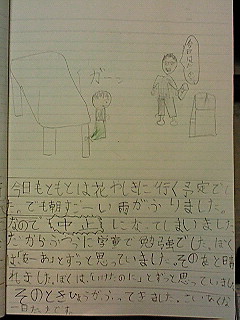 ガーン
今日は
今日もともとは花わしきに行く予定でし
た。でも朝すごーい雨がふりました。
なので中止になってしまいました
だからふつうに家で勉強でした。ぼくは
ずっと思っていました。そのあと晴
れました。ぼくは、いけたのに、とずっと思っていました
そのときひょうがふってきました。
一日でした。